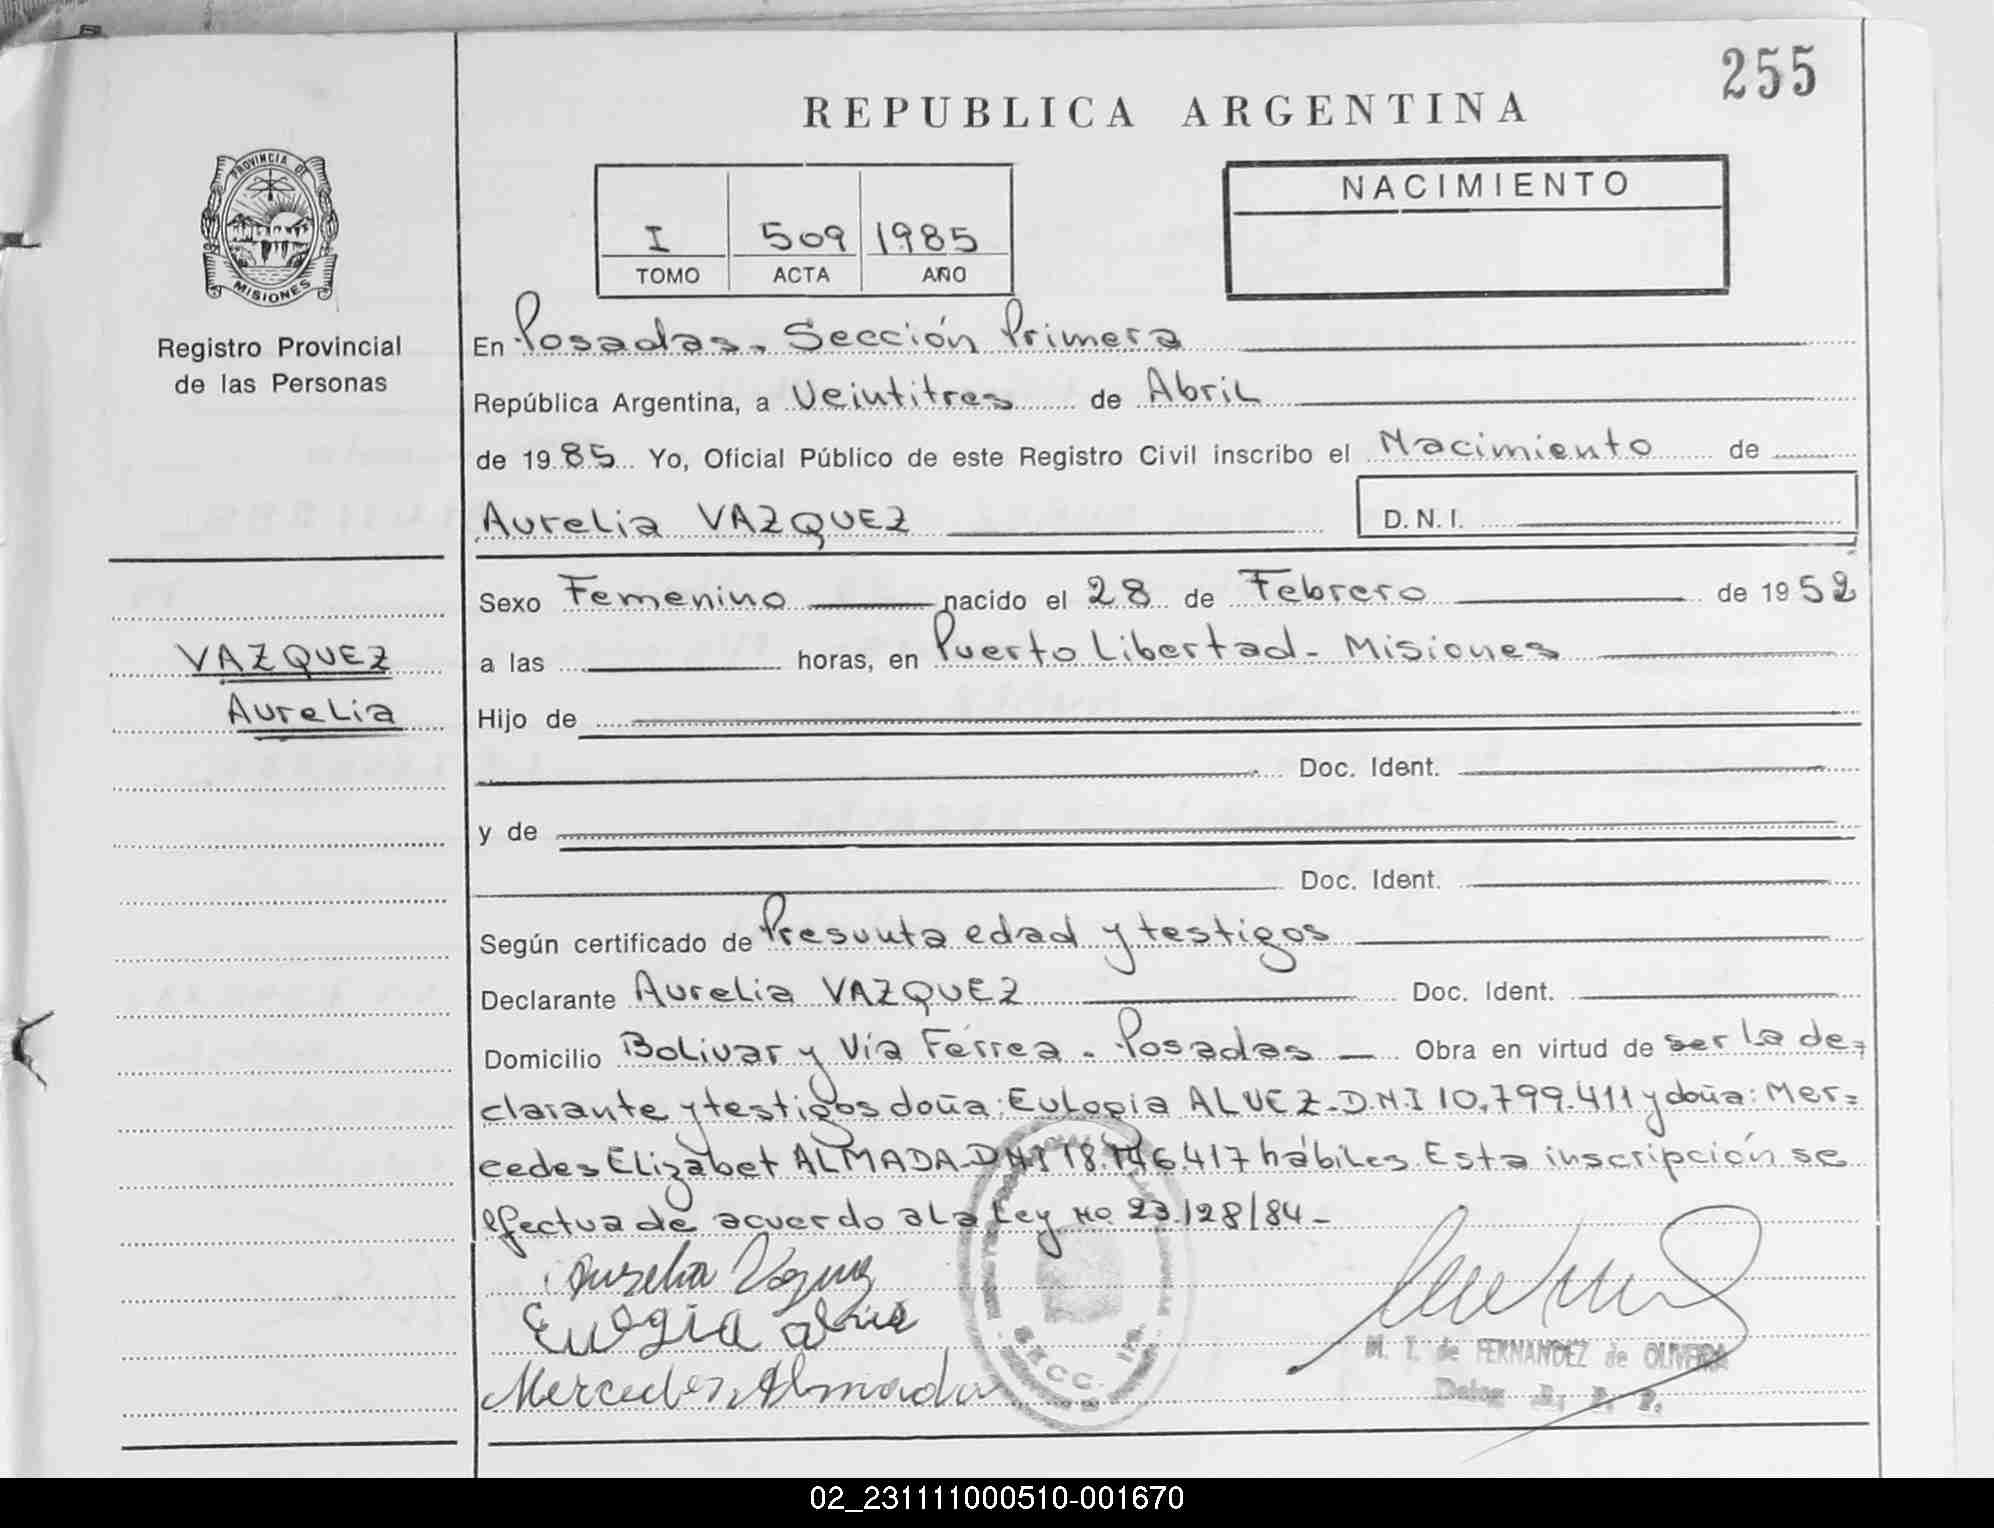 255
REPUBLICA ARGENTINA
PROVINCIA DE
MISIONES
Registro Provincial
de las Personas
I 509 1985
TOMO ACTA AÑO
NACIMIENTO
En Posadas. Sección Primera
República Argentina, a Veintitres de Abril
de 1985 Yo, Oficial Público de este Registro Civil inscribo el Nacimiento de
Aurelia VAZQUEZ D.N.I.
VAZQUEZ
Aurelia
Sexo Femenino nacido el 28 de Febrero de 1952
a las horas, en Puerto Libertad - Misiones
Hijo de
Doc. Ident.
y de
Doc. Ident.
Según certificado de Presunta edad y testigos
Declarante Aurelia VAZQUEZ Doc. Ident.
Domicilio Bolivar y Vía Férrea - Posadas — Obra en virtud de ser la de=
clarante y testigos doña: Eulogia ALVEZ-D.N.I 10.799.411 y doña: Mer=
cedes Elizabet ALMADA-DNI 18. 417 hábiles. Esta inscripción se
efectua de acuerdo a la Ley No 23.128/84-
Aurelia Vazquez
Eulogia
Mercedes Almada
SECC. 1ra.
M. I. de FERNANDEZ de OLIVEIRA
Deleg. R. P. P.
02_231111000510-001670